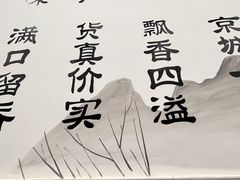 京城
飘香四溢
货真价实
满口留香